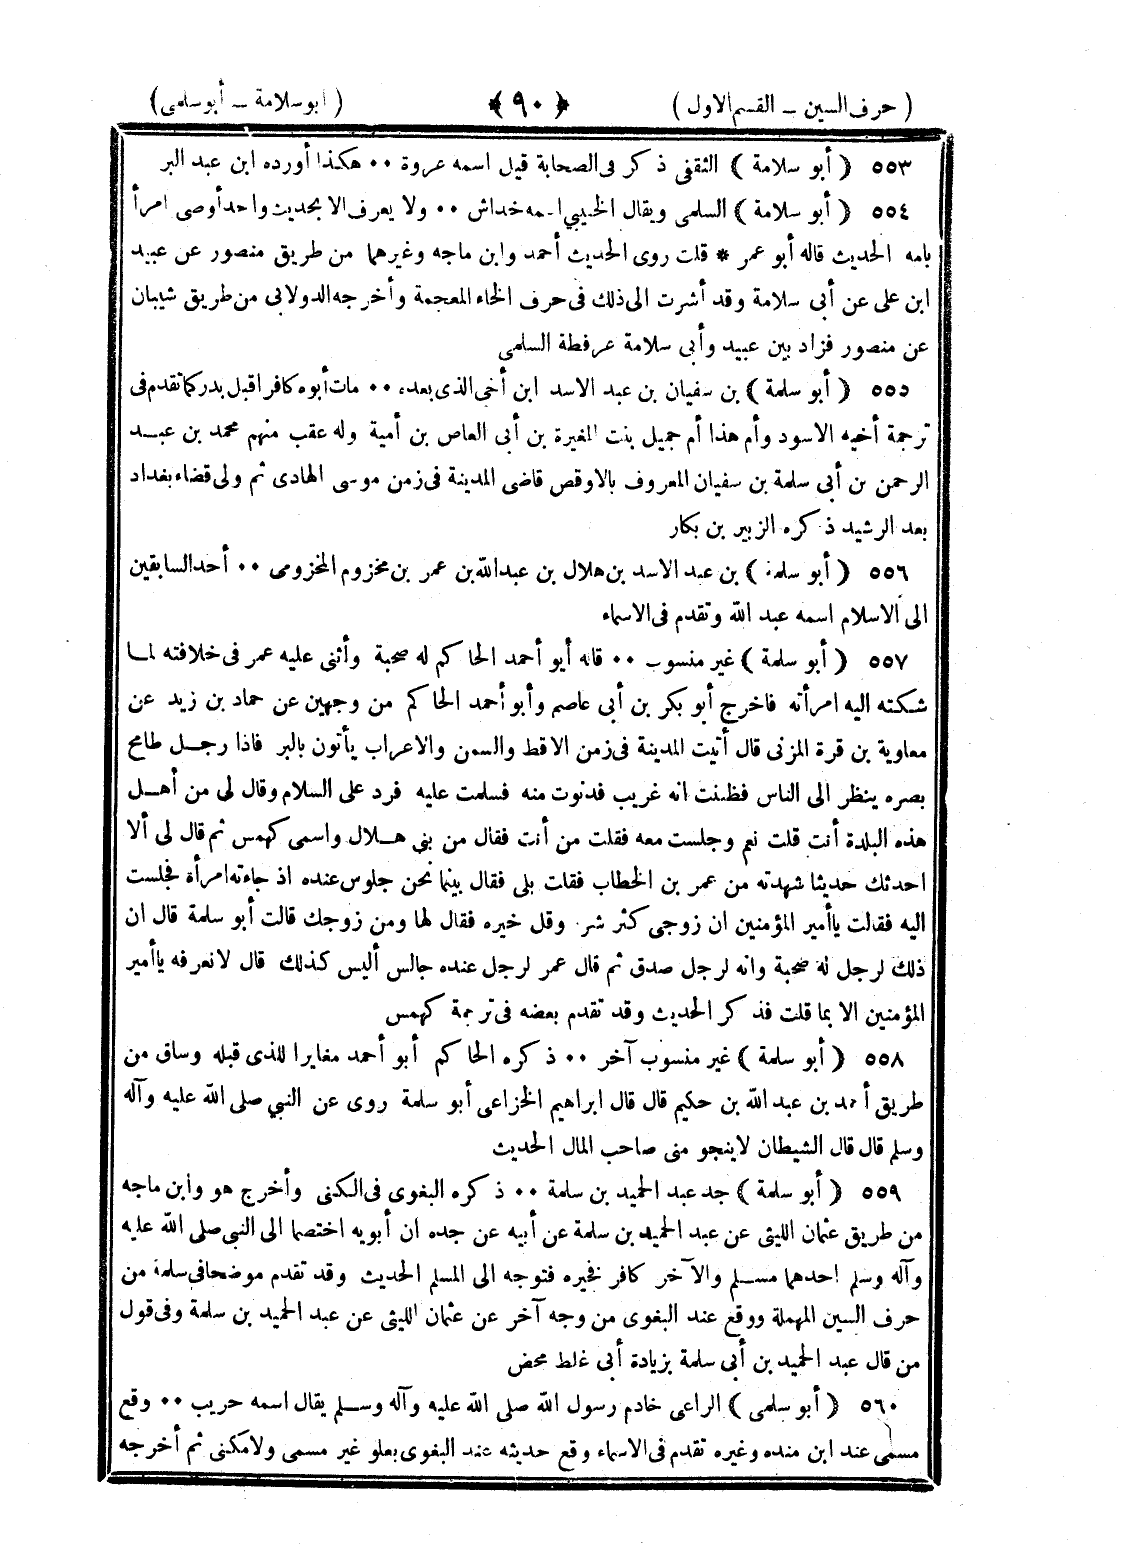 ( حرف السين ــ القسم الاول )
﴿ ٩٠ ﴾
( ابو سلامة ــ أبو سلمى )
٥٥٣ ( أبو سلامة ) الثقفى ذكر فى الصحابة قيل اسمه عروة ٠٠ هكذا أورده ابن عبد البر
٥٥٤ ( أبو سلامة ) السلمى ويقال الحبيبي اسمه خداش ٠٠ ولا يعرف الا بحديث واحد أوصى امرأ
بامه الحديث قاله أبو عمر * قلت روى الحديث أحمد وابن ماجه وغيرهما من طريق منصور عن عبيد
ابن على عن أبى سلامة وقد أشرت الى ذلك فى حرف الخاء المعجمة وأخرجه الدولابى من طريق شيبان
عن منصور فزاد بين عبيد وأبى سلامة عرفطة السلمى
٥٥٥ ( أبو سلمة ) بن سفيان بن عبد الاسد ابن أخى الذى بعده ٠٠ مات أبوه كافرا قبل بدر كما تقدم فى
ترجمة أخيه الاسود وأم هذا أم جميل بنت المغيرة بن أبى العاص بن أمية وله عقب منهم محمد بن عبد
الرحمن بن أبى سلمة بن سفيان المعروف بالاوقص قاضى المدينة فى زمن موسى الهادى ثم ولى قضاء بغداد
بعد الرشيد ذكره الزبير بن بكار
٥٥٦ ( أبو سلمة ) بن عبد الاسد بن هلال بن عبد الله بن عمر بن مخزوم المخزومى ٠٠ أحد السابقين
الى الاسلام اسمه عبد الله وتقدم فى الاسماء
٥٥٧ ( أبو سلمة ) غير منسوب ٠٠ قاله أبو أحمد الحاكم له صحبة وأثنى عليه عمر فى خلافته لما
شكته اليه امرأته فاخرج أبو بكر بن أبى عاصم وأبو أحمد الحاكم من وجهين عن حماد بن زيد عن
معاوية بن قرة المزنى قال أتيت المدينة فى زمن الاقط والسمن والاعراب يأتون بالبر فاذا رجل طامح
بصره ينظر الى الناس فظننت انه غريب فدنوت منه فسلمت عليه فرد على السلام وقال لى من أهل
هذه البلدة أنت قلت نعم وجلست معه فقلت من أنت فقال من بنى هلال واسمى كهمس ثم قال لى ألا
احدثك حديثا شهدته من عمر بن الخطاب فقلت بلى فقال بينما نحن جلوس عنده اذ جاءته امرأة فجلست
اليه فقالت ياأمير المؤمنين ان زوجى كثر شره وقل خيره فقال لها ومن زوجك قالت أبو سلمة قال ان
ذلك لرجل له صحبة وانه لرجل صدق ثم قال عمر لرجل عنده جالس أليس كذلك قال لا نعرفه ياأمير
المؤمنين الا بما قلت فذكر الحديث وقد تقدم بعضه فى ترجمة كهمس
٥٥٨ ( أبو سلمة ) غير منسوب آخر ٠٠ ذكره الحاكم أبو أحمد مغايرا للذى قبله وساق من
طريق أحمد بن عبد الله بن حكيم قال قال ابراهيم الخزاعى أبو سلمة روى عن النبي صلى الله عليه وآله
وسلم قال قال الشيطان لاينجو منى صاحب المال الحديث
٥٥٩ ( أبو سلمة ) جد عبد الحميد بن سلمة ٠٠ ذكره البغوى فى الكنى وأخرج هو وابن ماجه
من طريق عثمان الليثى عن عبد الحميد بن سلمة عن أبيه عن جده ان أبويه اختصما الى النبي صلى الله عليه
وآله وسلم احدهما مسلم والآخر كافر فخيره فتوجه الى المسلم الحديث وقد تقدم موضحا فى سلمة من
حرف السين المهملة ووقع عند البغوى من وجه آخر عن عثمان الليثى عن عبد الحميد بن سلمة وفى قول
من قال عبد الحميد بن أبى سلمة بزيادة أبى غلط محض
٥٦٠ ( أبو سلمى ) الراعى خادم رسول الله صلى الله عليه وآله وسلم يقال اسمه حريب ٠٠ وقع
مسمى عند ابن منده وغيره تقدم فى الاسماء وقع حديثه عند البغوى بعلو غير مسمى ولا مكنى ثم أخرجه